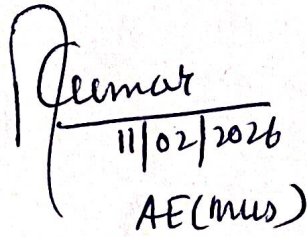 Kumar
11/02/2026
AE(MUS)